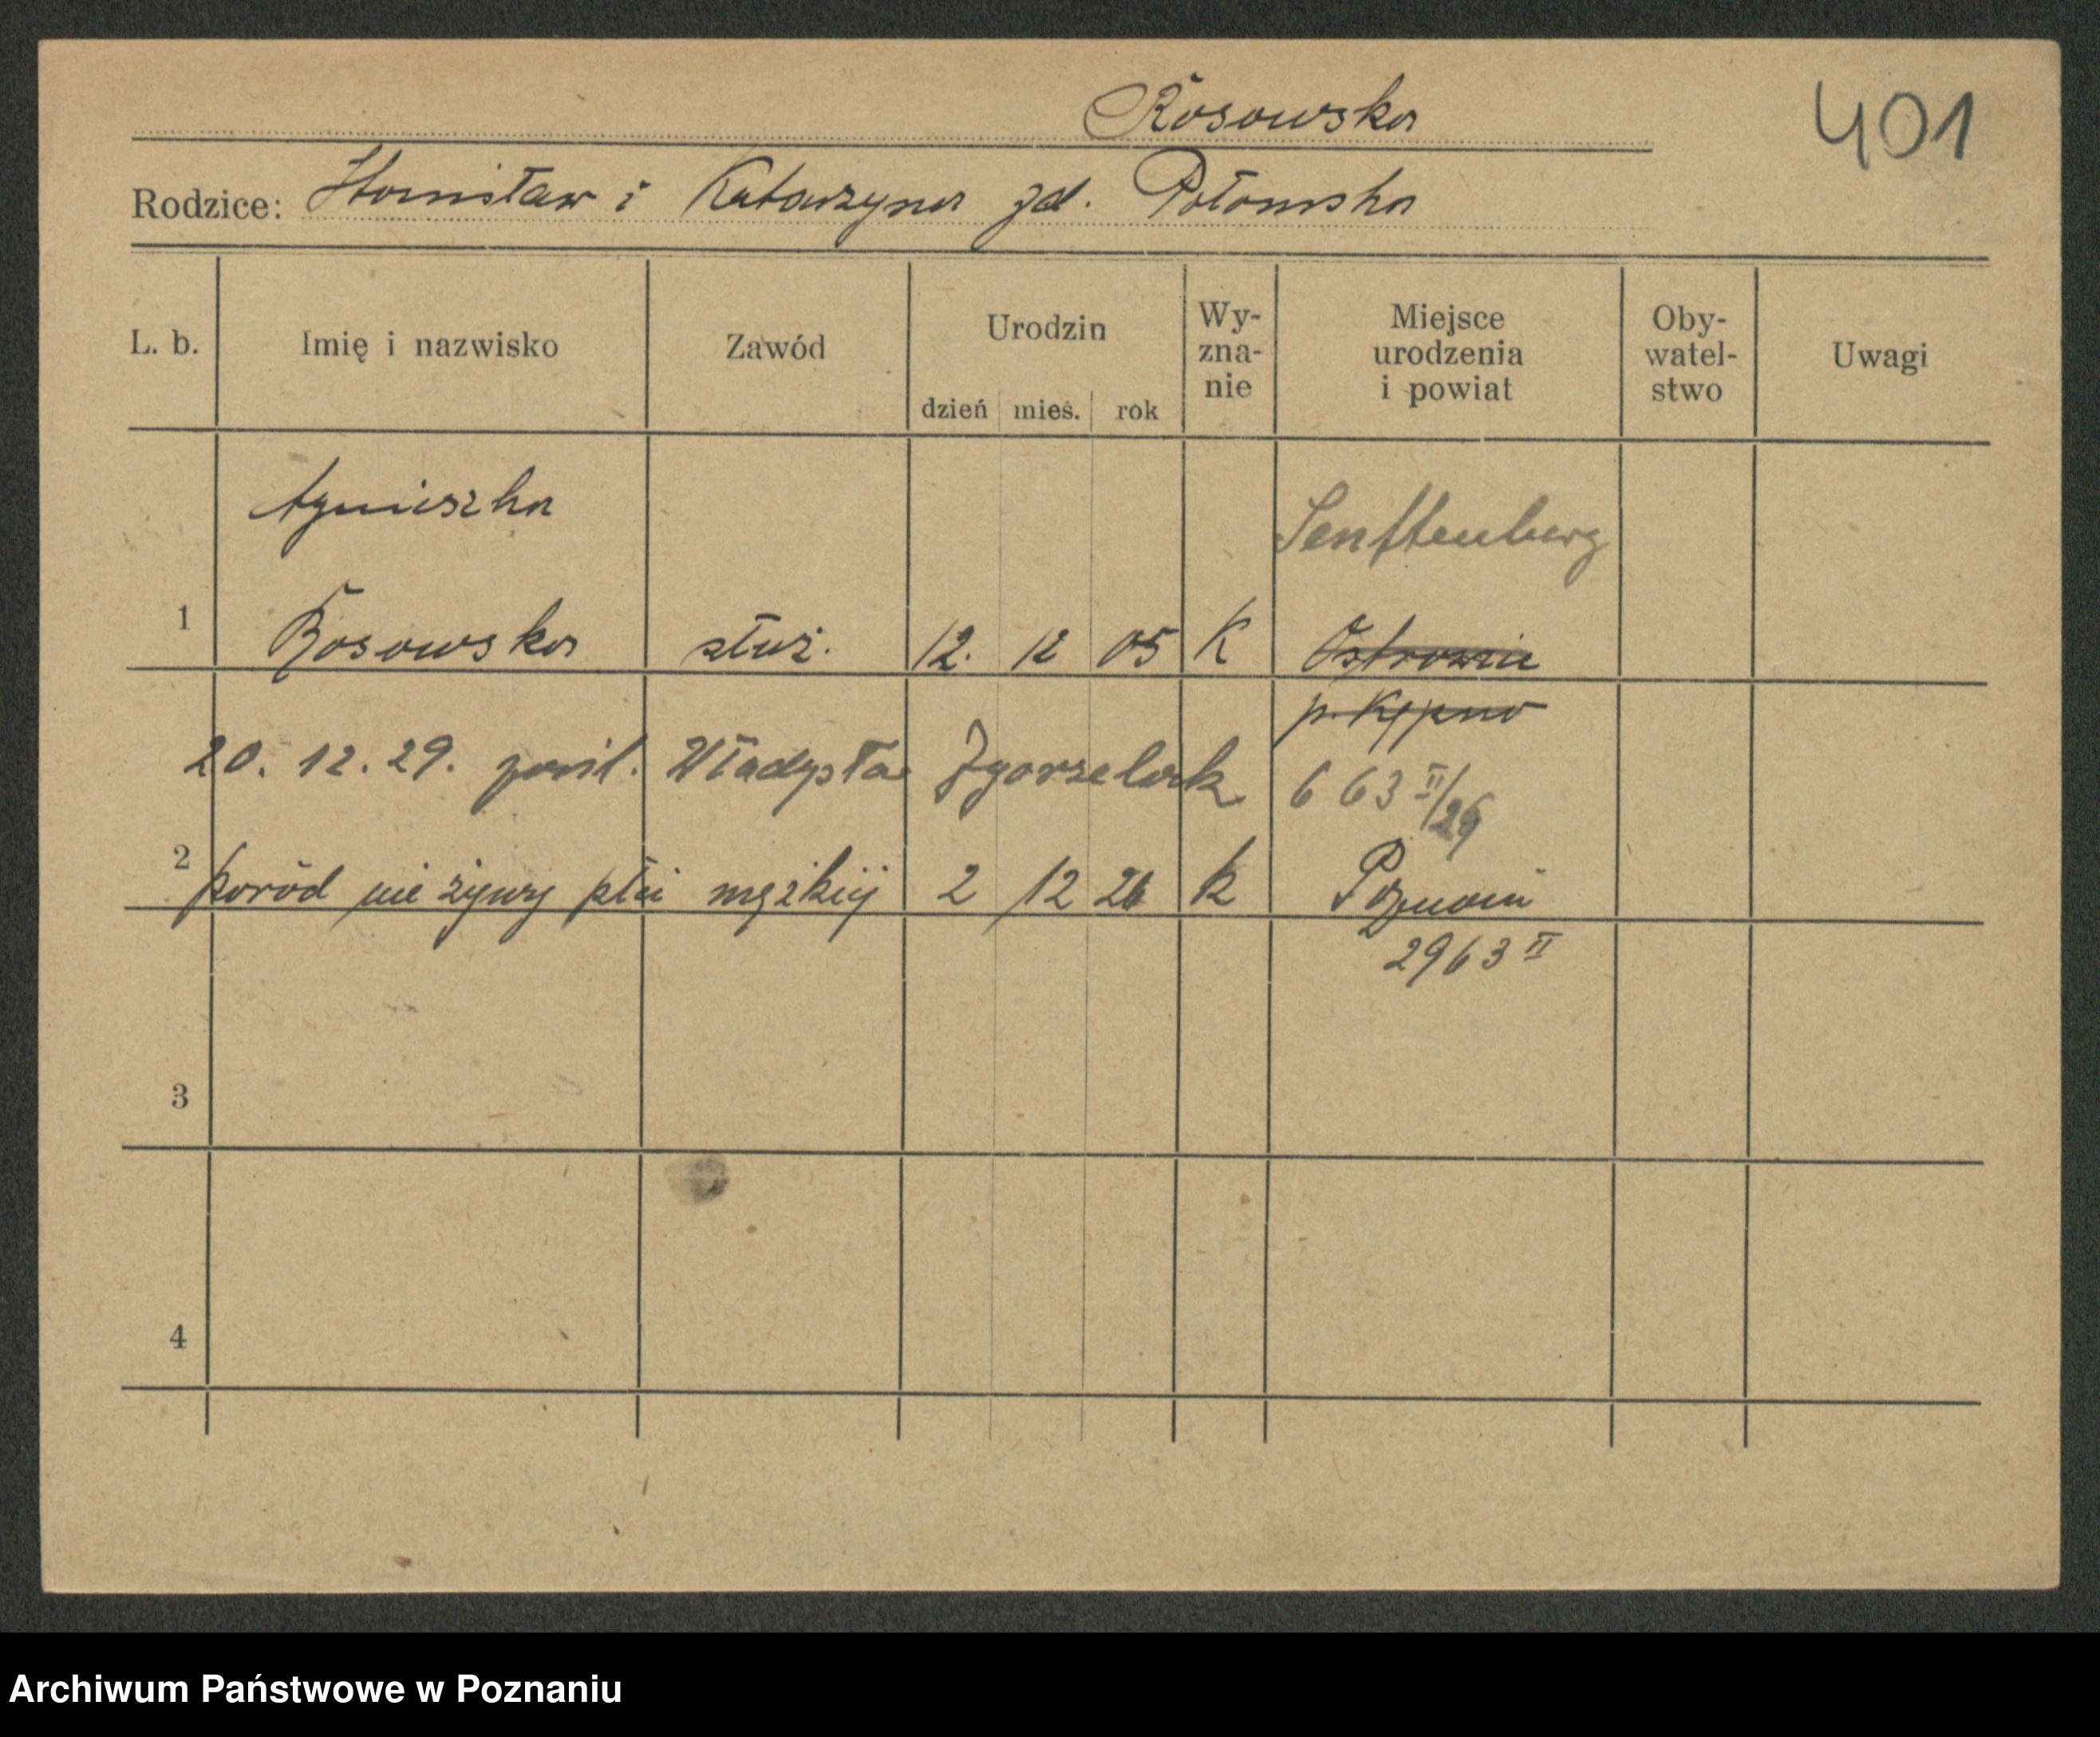 Rosowska
401
Rodzice: Stanisław i Katarzyna zd. Potomska
L. b.
Imię i nazwisko
Zawód
Urodzin
dzień mieś. rok
Wy-
zna-
nie
Miejsce
urodzenia
i powiat
Oby-
watel-
stwo
Uwagi
Agnieszka
Senftenberg
1 Rosowska służ. 12. 12 05 K Ostrowiu
p. Kępno
20. 12. 29. Władysła Zgorzelak 663 II/29
2 poród nieżywy płci męzkiij 2 12 26 k Poznań
2963 II
3
4
Archiwum Państwowe w Poznaniu